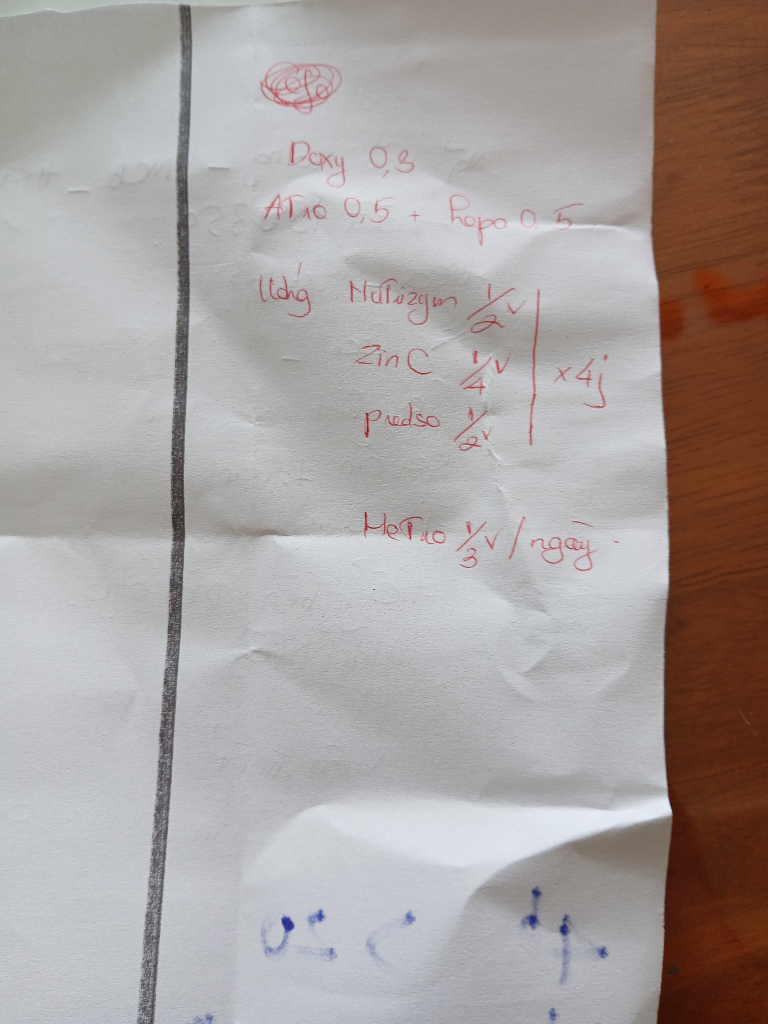 Doxy 0,3
ATro 0,5 + hepa 0,5
Uống Nutrizym 1/2 v
Zin C 1/4 v
predso 1/2 v
x 4j
Metro 1/3 v / ngày